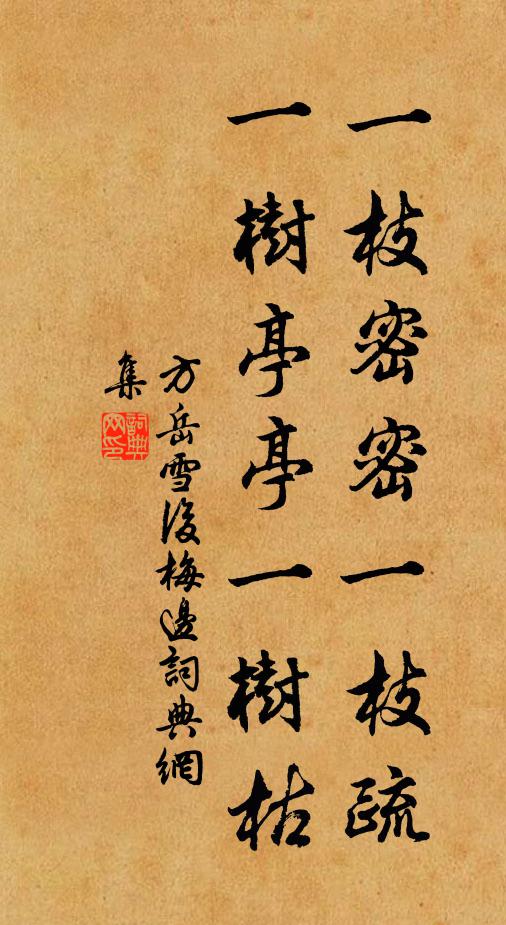 一枝密密一枝疏
一樹亭亭一樹枯
方岳雪後梅邊詞典網
集
詞典
网印